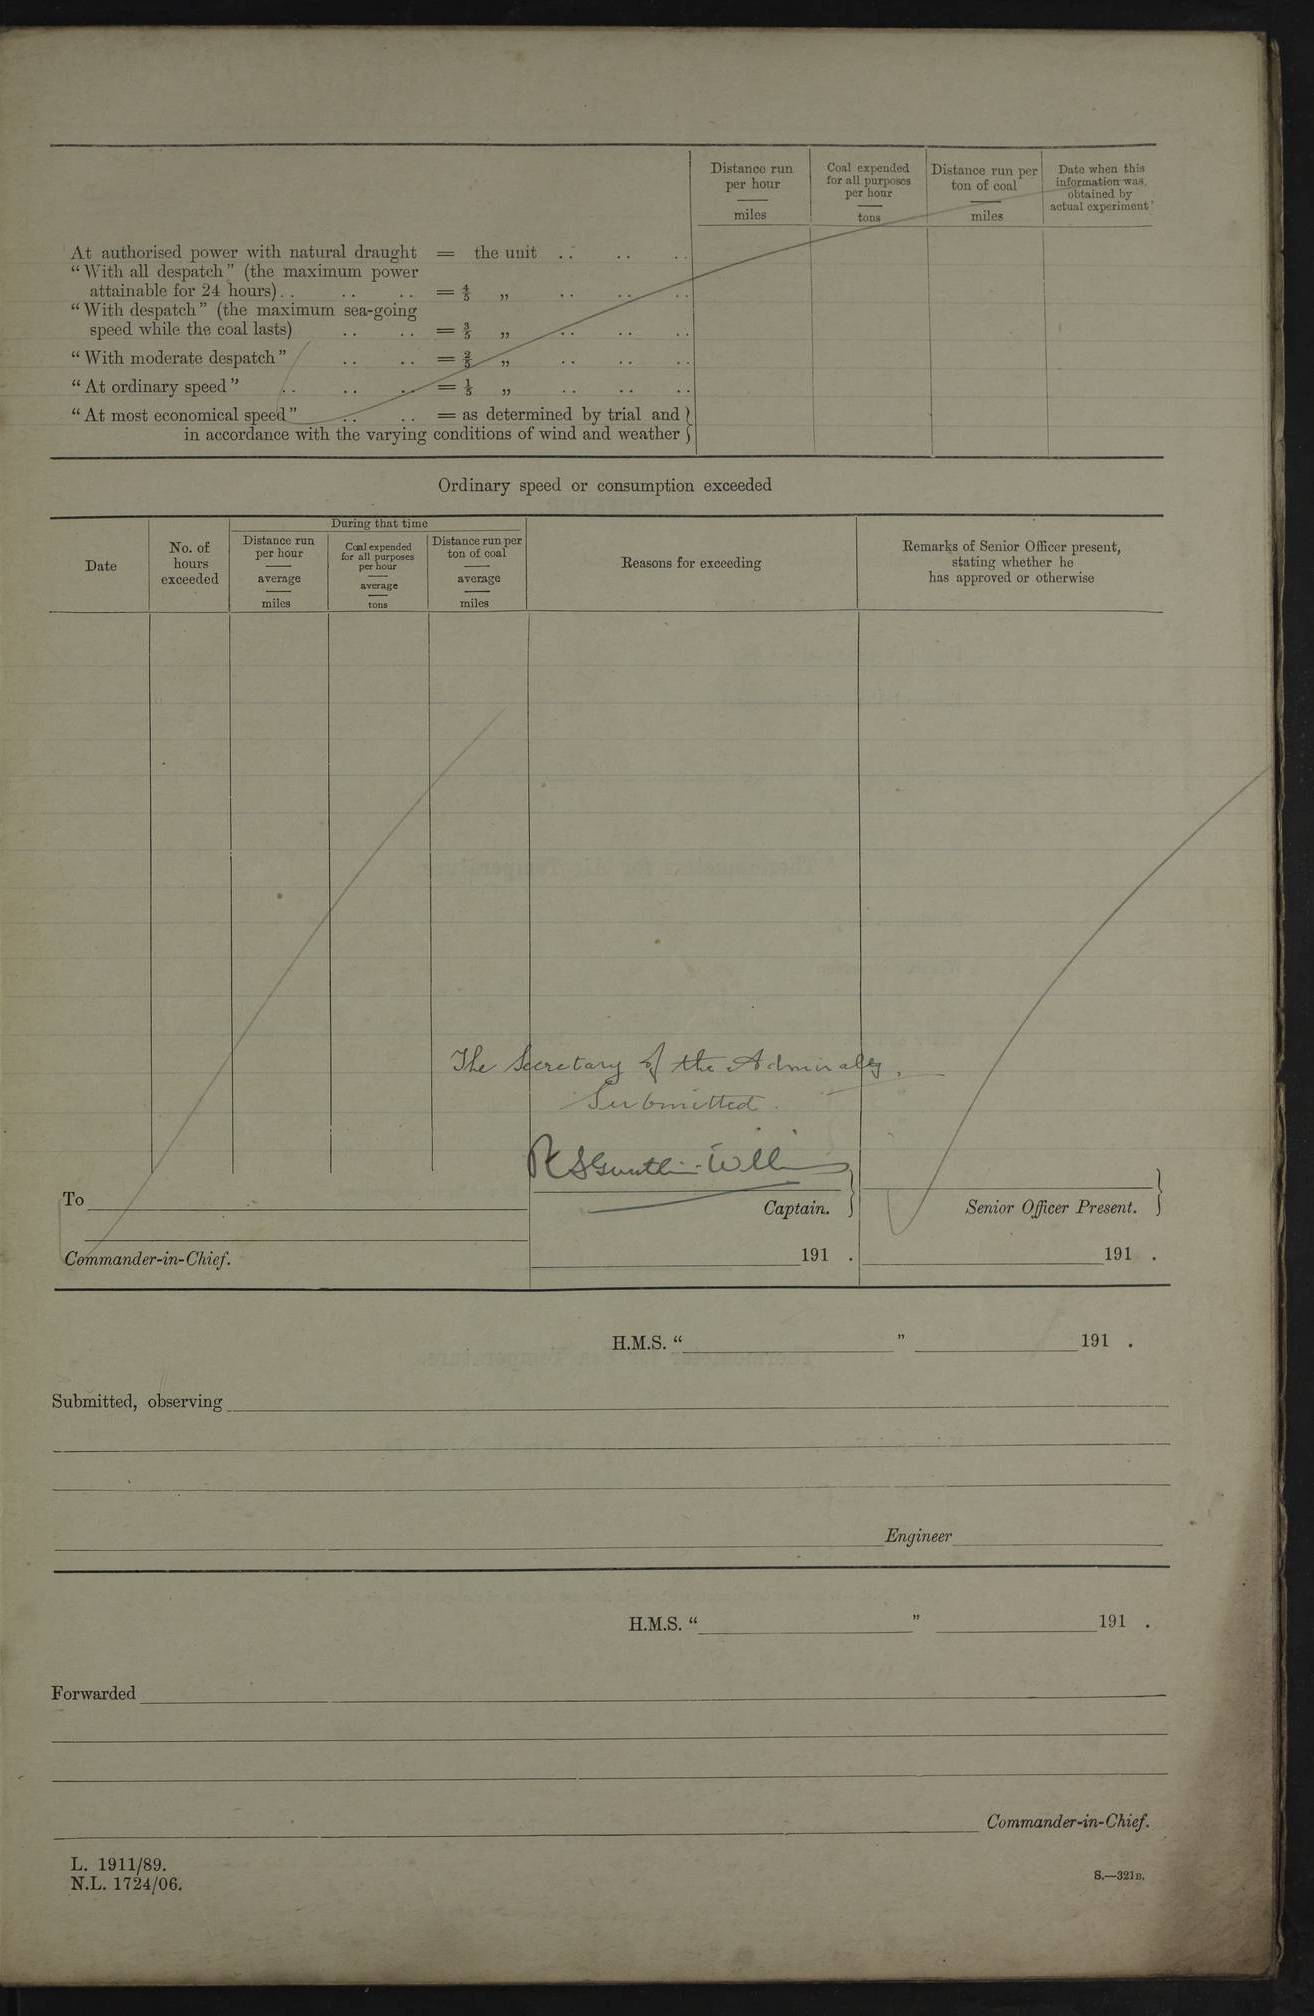 Distance run per hour miles
Coal expended for all purposes per hour tons
Distance run per ton of coal miles
Date when this information was obtained by actual experiment
At authorised power with natural draught = the unit .. .. ..
“With all despatch” (the maximum power
attainable for 24 hours) .. .. .. = 4/5 „ .. .. ..
“With despatch” (the maximum sea-going
speed while the coal lasts) .. .. = 3/5 „ .. .. ..
“With moderate despatch” .. .. = 2/5 „ .. .. ..
“At ordinary speed” .. .. .. = 1/5 „ .. .. ..
“At most economical speed” .. .. = as determined by trial and }
in accordance with the varying conditions of wind and weather }
Ordinary speed or consumption exceeded
Date
No. of hours exceeded
During that time
Distance run per hour average miles
Coal expended for all purposes per hour average tons
Distance run per ton of coal average miles
Reasons for exceeding
Remarks of Senior Officer present,
stating whether he
has approved or otherwise
The Secretary of the Admiralty.
Submitted.
To
Captain. }
Senior Officer Present. }
Commander-in-Chief.
191 .
191 .
H.M.S. “ ” 191 .
Submitted, observing
Engineer
H.M.S. “ ” 191 .
Forwarded
Commander-in-Chief.
L. 1911/89.
N.L. 1724/06.
S.—321B.